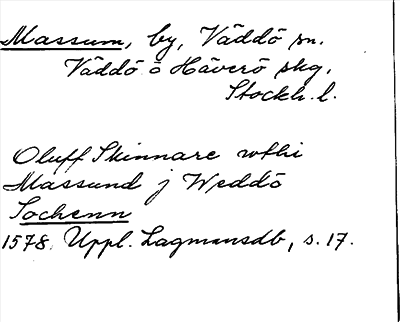 Massum, by, Väddö sn.
Väddö o Häverö skg.
Stockh. l.
Oluff Skinnare wthi
Massund j Weddö
Sochenn
1578. Uppl. Lagmansdb, s. 17.